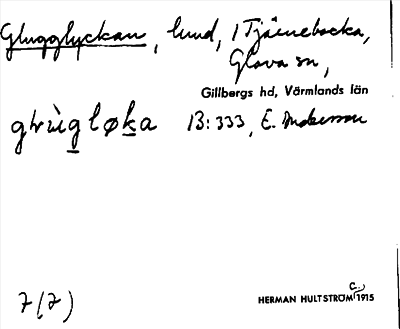 Glugglyckan, lund, / Tjärnebacka,
Glava sn,
Gillbergs hd, Värmlands län
13:333, E.
7(7)
HERMAN HULTSTRÖM 1915